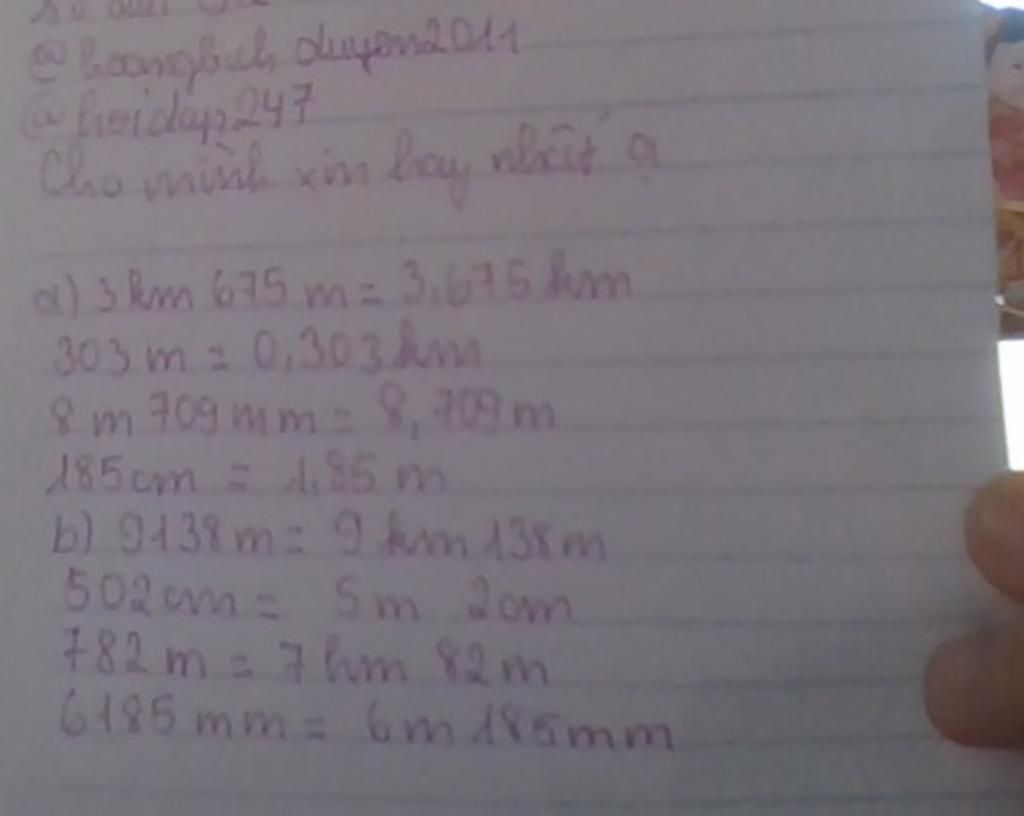 @hoangbich duyen2011
@hoidap247
Cho mình xin hay nhất ạ
a) 3km 675 m = 3,675 km
303 m = 0,303 km
8 m 709 mm = 8,709 m
185cm = 1,85 m
b) 9138 m = 9 km 138 m
502cm = 5m 2cm
782 m = 7 hm 82 m
6185 mm = 6m 185mm